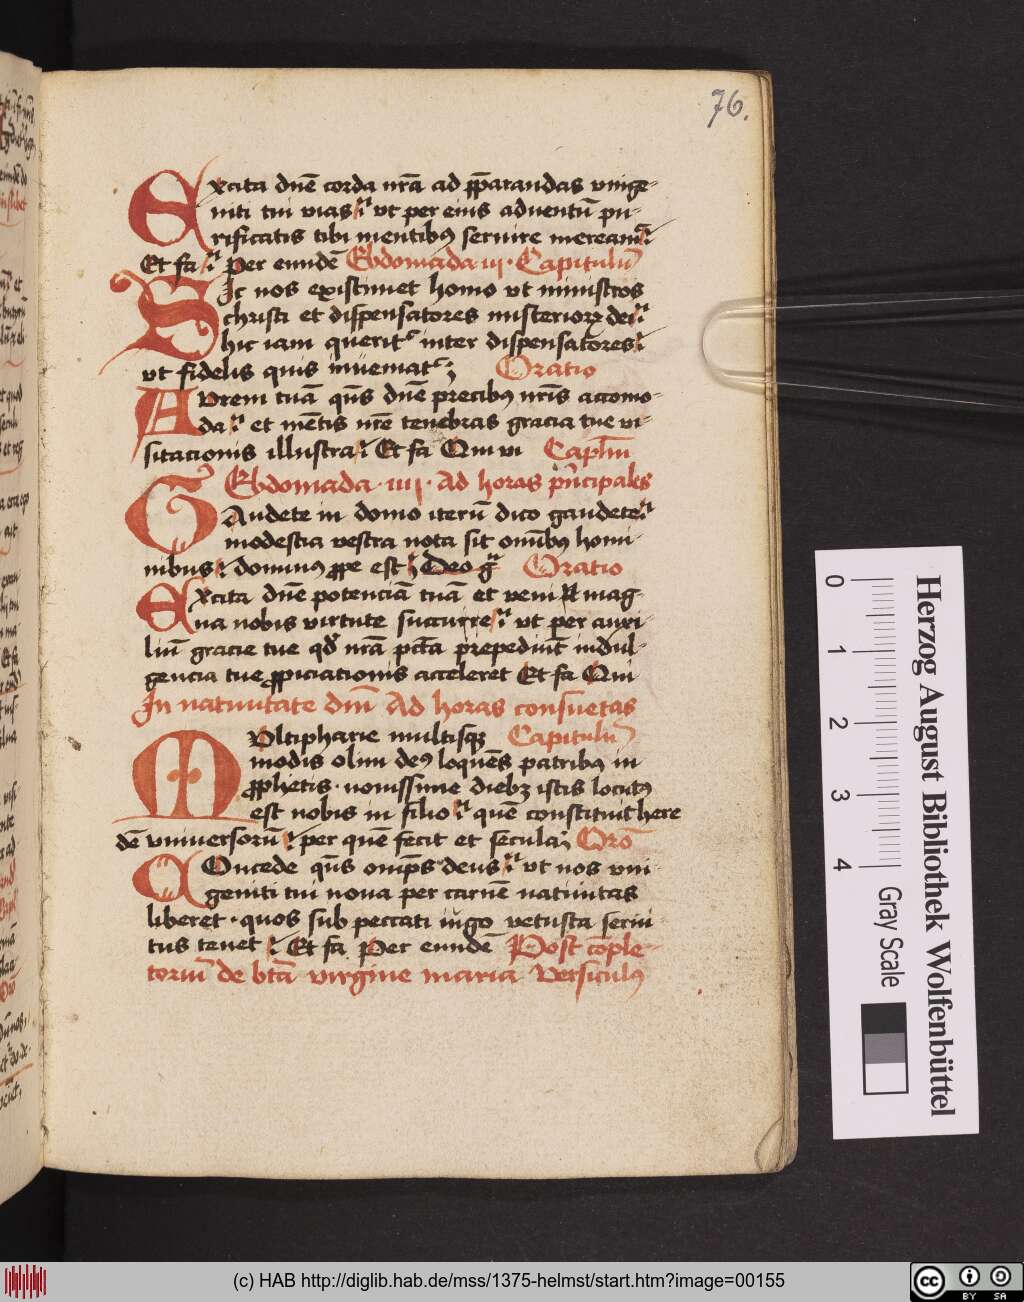 76.
Excita dnē corda nrā ad p̄parandas vnige-
niti tui vias ut per eius aduentū pu-
rificatis tibi mentibꝰ seruire meream̄
Et fa per eundē Ebdomada iij · Capitulū
Sic nos existimet homo vt ministros
christi et dispensatores misteriorꝝ dei
hic iam querit᷑ inter dispensatores
vt fidelis quis inueniat᷑ Oratio
Avrem tuā qūs dnē precibꝰ nrīs accomo-
da et mētis nrē tenebras gracia tue vi-
sitacionis illustra Et fa Qui vi Caplm̄
Ebdomada · iiij · Ad horas pn̄cipales
Gaudete in domo iterū dico gaudete
modestia vestra nota sit om̄ibꝰ homi-
nibus dominꝰ ꝓpe est Deo gr̄ Oratio
Excita dnē potenciā tuā et veni et mag-
na nobis virtute succurre vt per auxi-
liū gracie tue qd̄ nrā pctā prepediūt indul-
gencia tue ꝓpiciationis acceleret Et fa Qui
In natiuitate dnī Ad horas consuetas
Mvltipharie multisqꝫ Capitulū
modis olim deꝰ loquēs patribꝰ in
ꝓphetis · nouissime diebꝫ istis locutꝰ
est nobis in filio quē constituit here
dē vniuersorū per quē fecit et secula Orō
Concede qūs omp̄s deus vt nos vni
geniti tui noua per carnē natiuitas
liberet · quos sub peccati iugo vetusta serui
tus tenet Et fa Per eundē Post cōple
toriū de btā virgine maria Versiculꝰ
0 1 2 3 4
Gray Scale
Herzog August Bibliothek Wolfenbüttel
(c) HAB http://diglib.hab.de/mss/1375-helmst/start.htm?image=00155
cc BY SA